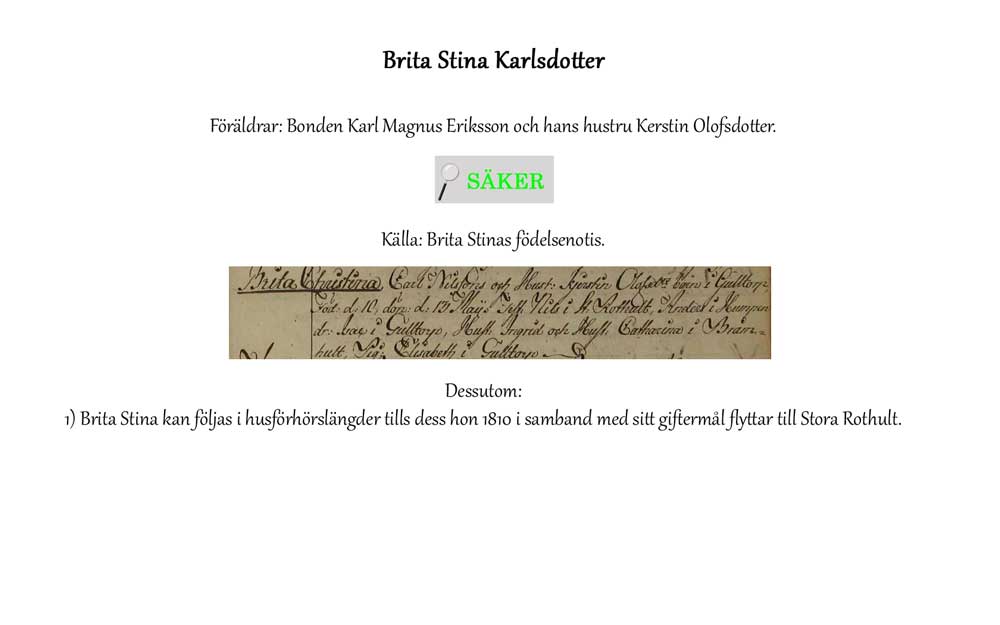 Brita Stina Karlsdotter
Föräldrar: Bonden Karl Magnus Eriksson och hans hustru Kerstin Olofsdotter.
SÄKER
Källa: Brita Stinas födelsenotis.
Brita Christina, Carl Nilsons och Hust: Kjerstin Olofsd:rs barn i Gulltorp
Föd: d: 10, döp: d: 13 Maij: Test. Nils i St Rothult, Anders i
dr: Isac i Gulltorp, Hust. Ingrid och Hust. Catharina i Bräm=
hult, Pig: Elisabeth i Gulltorp
Dessutom:
1) Brita Stina kan följas i husförhörslängder tills dess hon 1810 i samband med sitt giftermål flyttar till Stora Rothult.